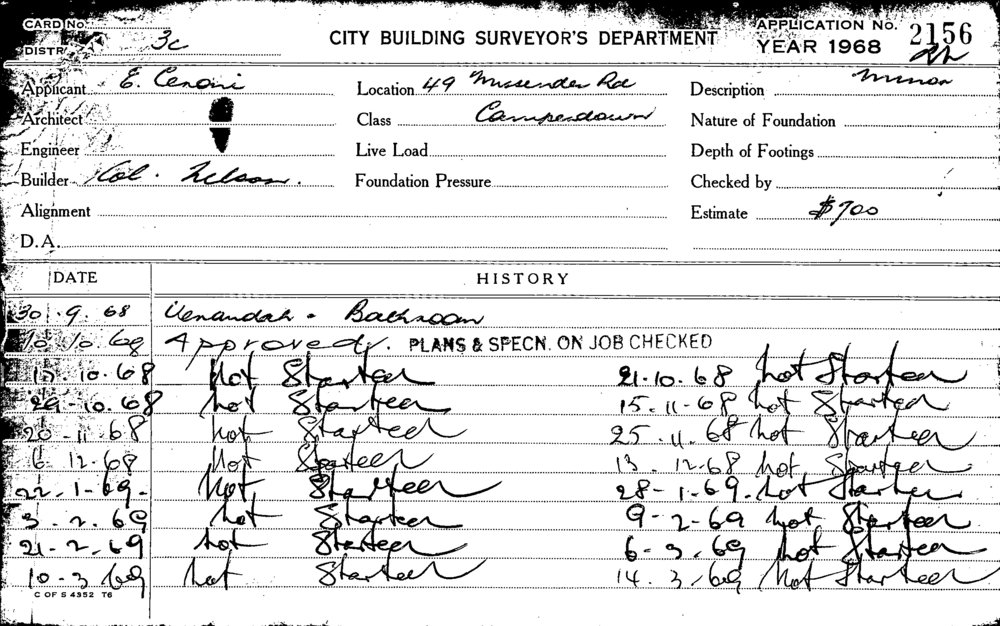 CARD No.
DISTR. 3c
CITY BUILDING SURVEYOR'S DEPARTMENT
APPLICATION No. 2156
YEAR 1968
Applicant E. Cenoni
Location 49 Missenden Rd
Description Minor
Architect
Class Camperdown
Nature of Foundation
Engineer
Live Load
Depth of Footings
Builder Col. Nelson.
Foundation Pressure
Checked by
Alignment
Estimate $700
D.A.
DATE HISTORY
30.9.68 Verandah - Bathroom
10.10.68 Approved. PLANS & SPECN. ON JOB CHECKED
15.10.68 Not Started 21.10.68 Not Started
29-10.68 Not Started 15.11-68 Not Started
20-11-68 Not Started 25.11.68 Not Started
6.12.68 Not Started 13.12.68 Not Started
22.1-69. Not Started 28-1-69. Not Started
3.2.69 Not Started 9-2-69 Not Started
21-2.69 Not Started 6-3.69 Not Started
10-3.69 Not Started 14.3.69 Not Started
C OF S 4352 T6